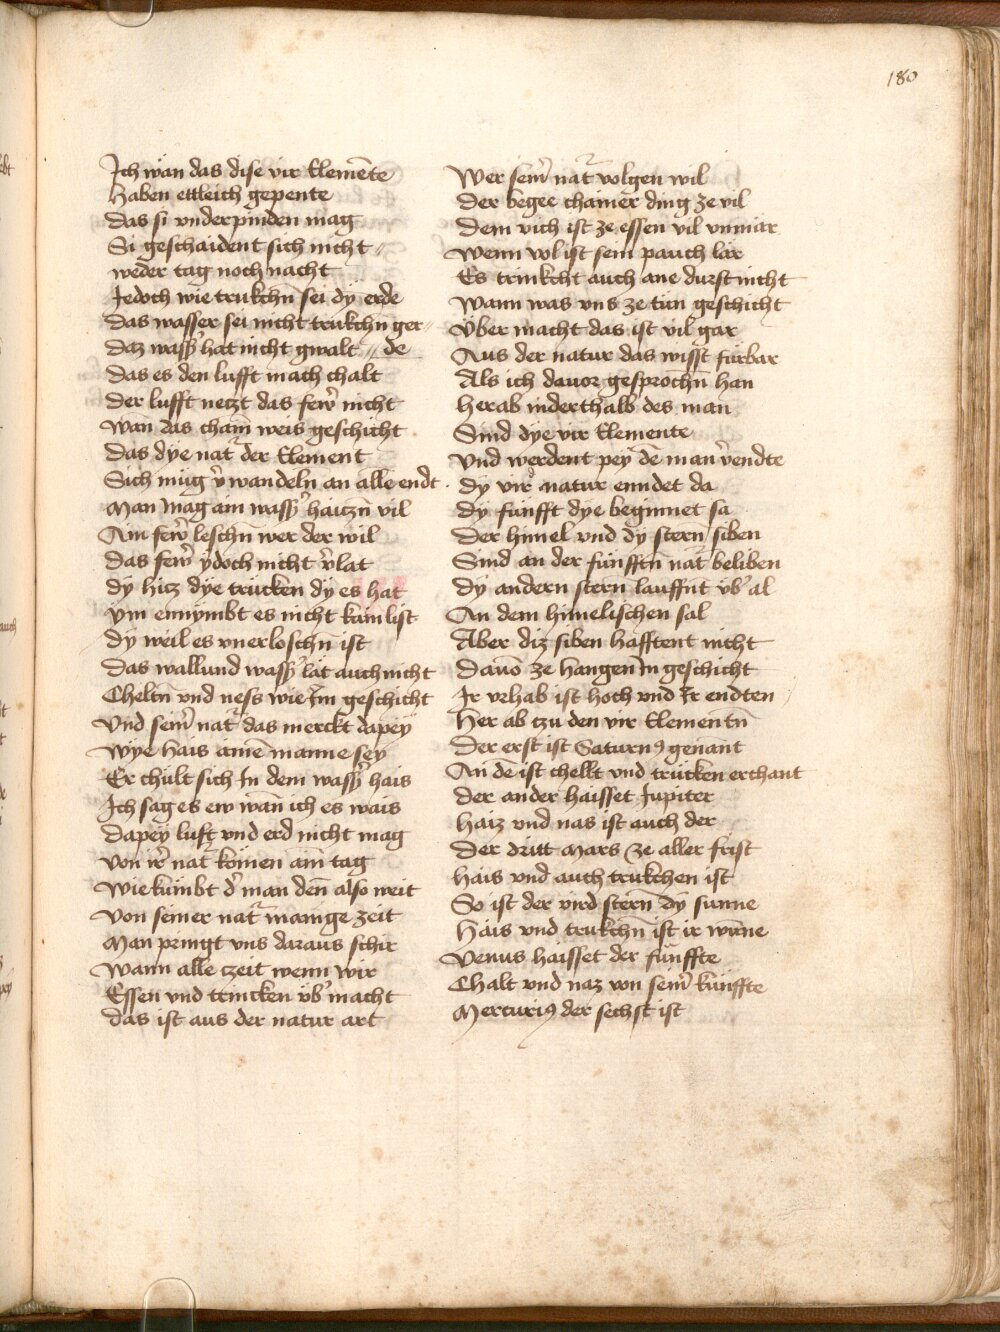 180
Ich wän das dise vir Elemēte
Haben ettleich gepente
Das si vnderpinden mag
Si geschaident sich nicht
weder tag noch nacht
Jedoch wie trukchn̄ sei dÿ erde
Das wasser sei nicht trukchn̄ ger⸗
daz wasß hat nicht gwalt ⸗de
Das es den lufft mach chalt
Der lufft neczt das few̄r nicht
wan̄ das cham̄ weis geschicht
Das dÿe nat̄ der Element
Sich müg v̄wandeln an alle endt
Man mag ain wasß haiczn̄ vil
Ain few̄r leschn̄ wer der wil
Das few̄r ÿdoch nicht v̄lat
Dÿ hicz dÿe trücken dÿ es hat
Ym ennÿmbt es nicht kain list
Dÿ weil es vnerloschn̄ ist
Das wallund wasß lät auch nicht
Cheltn̄ vnd ness wie Im geschicht
Vnd sein̄ nat̄ das merckt dapeÿ
Wÿe hais ainē manne seÿ
Er chült sich In dem wasß hais
Ich sag es ew wan̄ ich es wais
Dapeÿ luft vnd erd nicht mag
Von ir̄ nat̄ kömen ain̄ tag
Wie kümbt d' man den̄ also weit
Von seiner nat̄ mainge zeit
Man pringt vns daraus schir
Wann alle czeit wenn wir
Essen vnd trincken üb' macht
Das ist aus der natur art
Wer sein̄ nat̄ volgen wil
Der begee chainer ding ze vil
Dem vich ist ze essen vil vnmär
Wenn vol ist sein pauch lär
Es trinkcht auch ane durst nicht
Wann was vns ze tün geschicht
Über macht das ist vil gar
Aus der natur das wisst fürbar
Als ich dauor gesprochn̄ han
Herab inderthalb des man
Sind dÿe vir Elemente
Vnd werdent peÿ dē man v̄endte
Dÿ vir natur enndet da
Dÿ fünfft dÿe beginnet sa
Der himel vnd dÿ stern̄ siben
Sind an der fünfftn̄ nat̄ beliben
Dÿ andern stern lauffnt üb' al
An dem himelischen sal
Aber diz siben hafftent nicht
Dauō ze hangen In geschicht
Ir vrhab ist hoch vnd Er endten
Her ab czu den vir Elementn̄
Der erst ist Saturnꝰ genant
An dē ist chellt vnd trücken erchant
Der ander haisset Jupiter
Haiz vnd nas ist auch der
Der dritt Mars ze aller frist
Hais vnd auch trukchen ist
So ist der vird stern̄ dÿ sunne
Hais vnd trukchn̄ ist ir wūne
Venus haisset der fünffte
Chalt vnd naz von sein̄ künffte
Mercuriꝰ der sechst ist